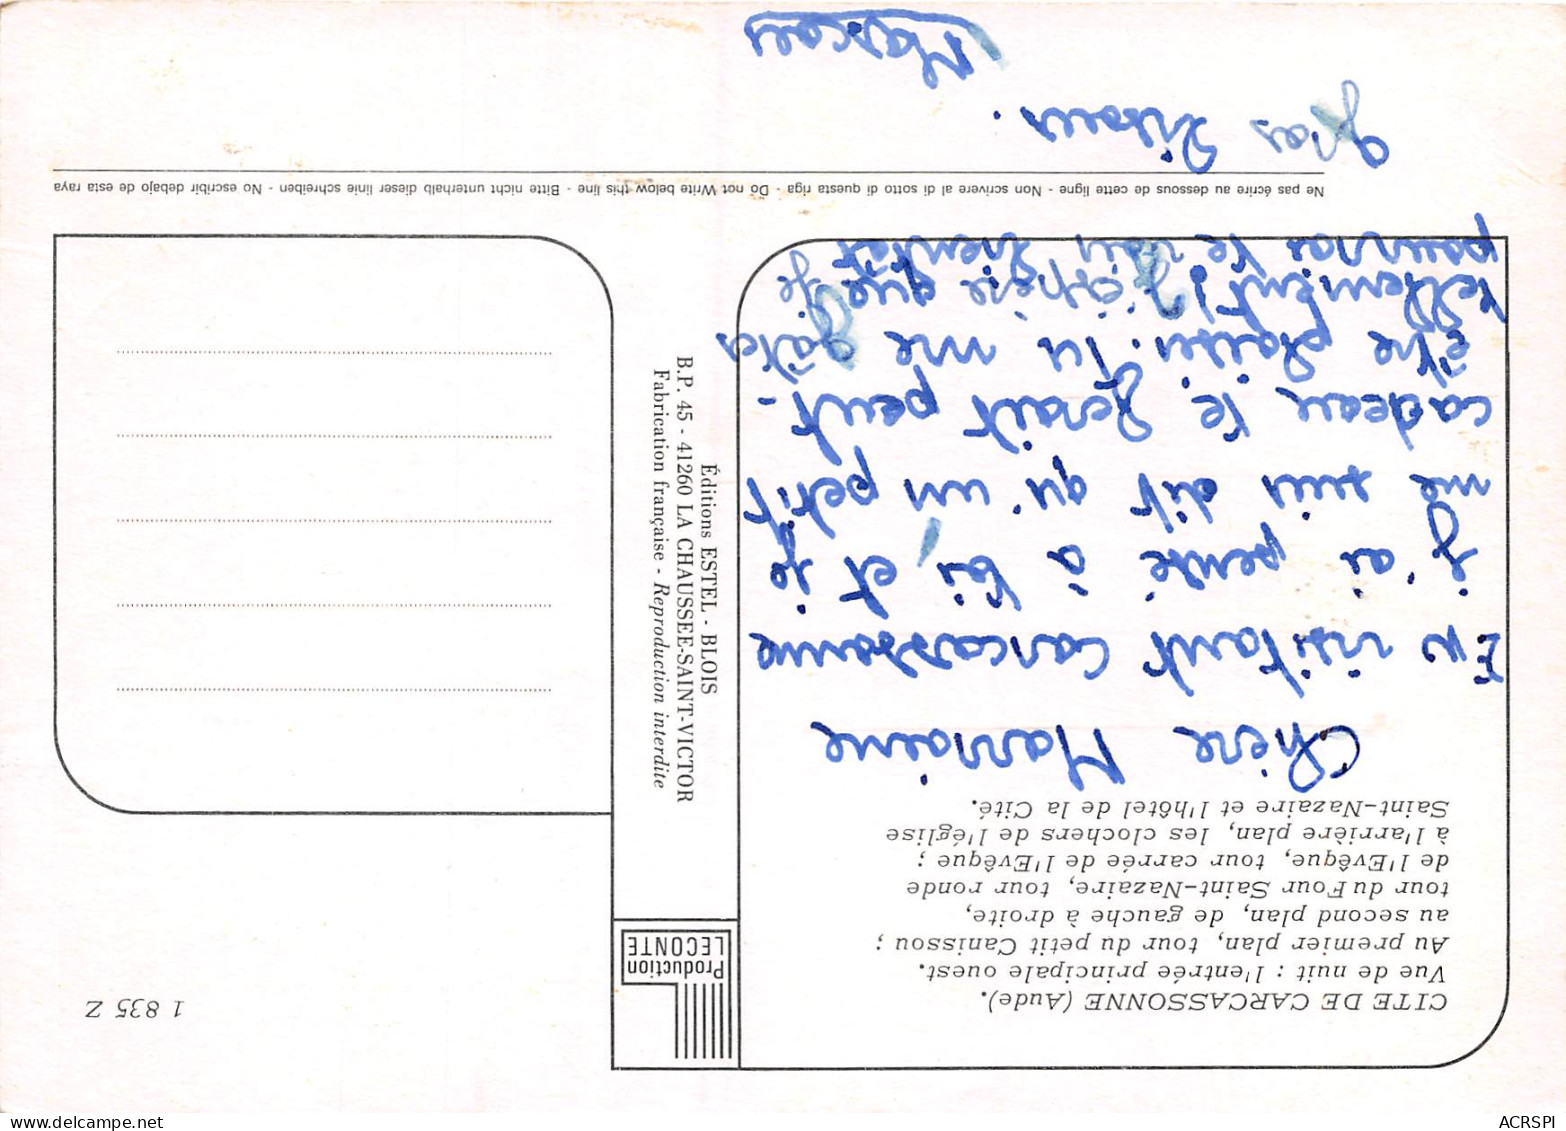 CITE DE CARCASSONNE (Aude).
Vue de nuit : l'entrée principale ouest.
Au premier plan, tour du petit Canissou ;
au second plan, de gauche à droite,
tour du Four Saint-Nazaire, tour ronde
de l'Evêque, tour carrée de l'Evêque ;
à l'arrière plan, les clochers de l'église
Saint-Nazaire et l'hôtel de la Cité.
Chère Marraine
En visitant Carcassonne
j'ai pensé à toi, et je
me suis dit qu'un petit
cadeau te ferait peut-
être plaisir. Tu me gâtes
tellement, j'espère que je
pourrai te voir bientôt
Ne pas écrire au dessous de cette ligne - Non scrivere al di sotto di questa riga - Do not Write below this line - Bitte nicht unterhalb dieser linie schreiben - No escribir debajo de esta raya
Gros bisous.
Production
LECONTE
Éditions ESTEL - BLOIS
B.P. 45 - 41260 LA CHAUSSEE-SAINT-VICTOR
Fabrication française - Reproduction interdite
1 835 Z
ACRSPI